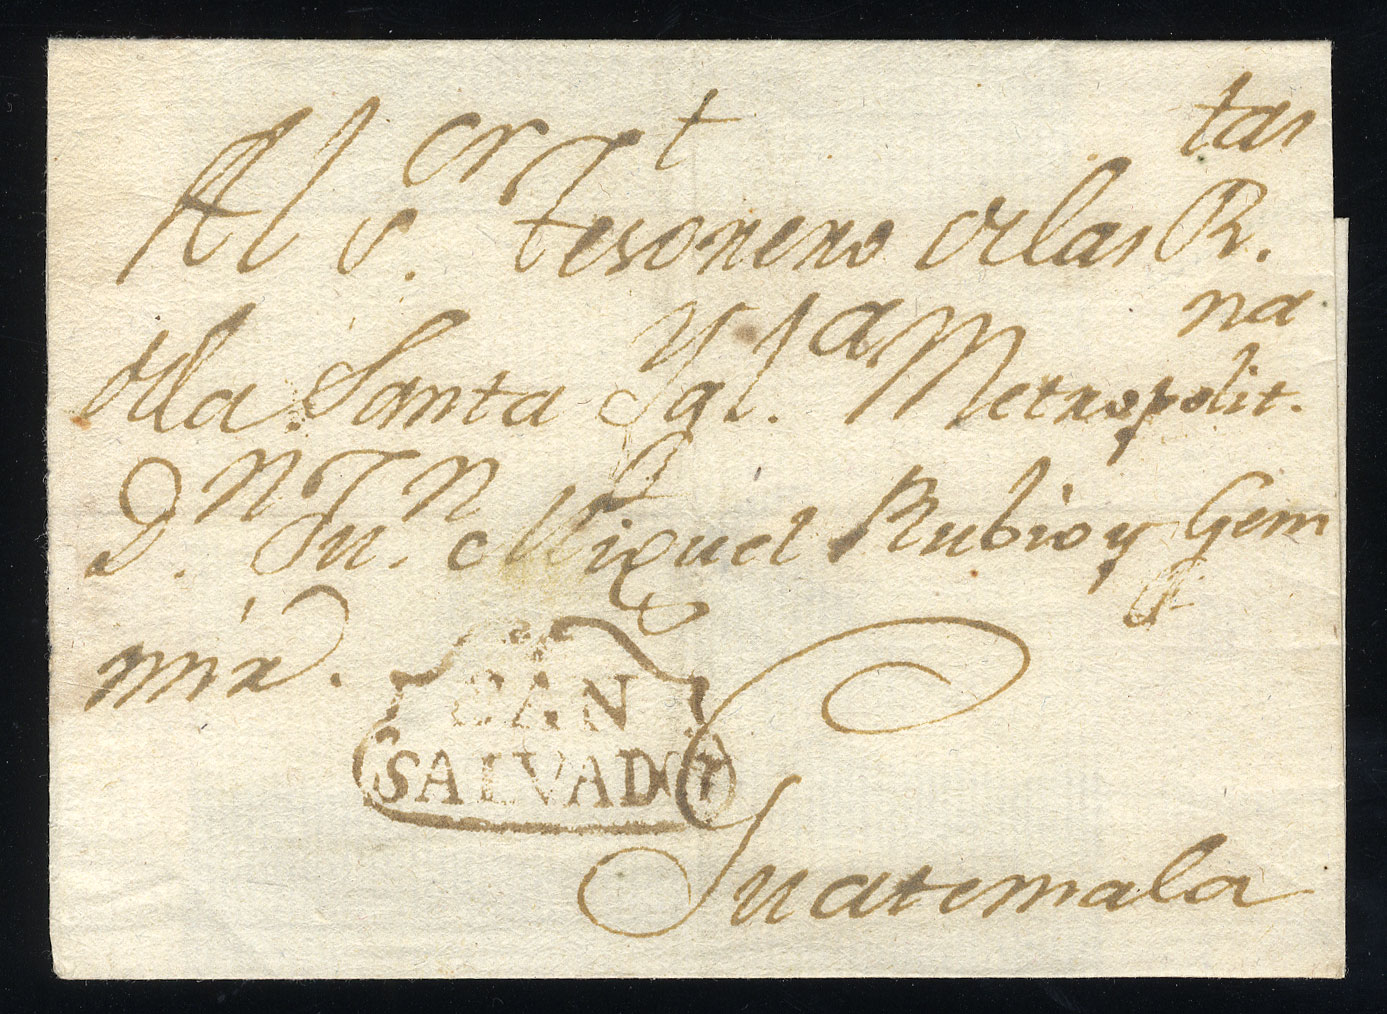 Al S.or Tesorero t de las R.tas
de la Santa Ygl.a Metropolit.na
D.n Ju.n Miguel Rubio y Gem
mir.
SAN
SALVADOR
Guatemala